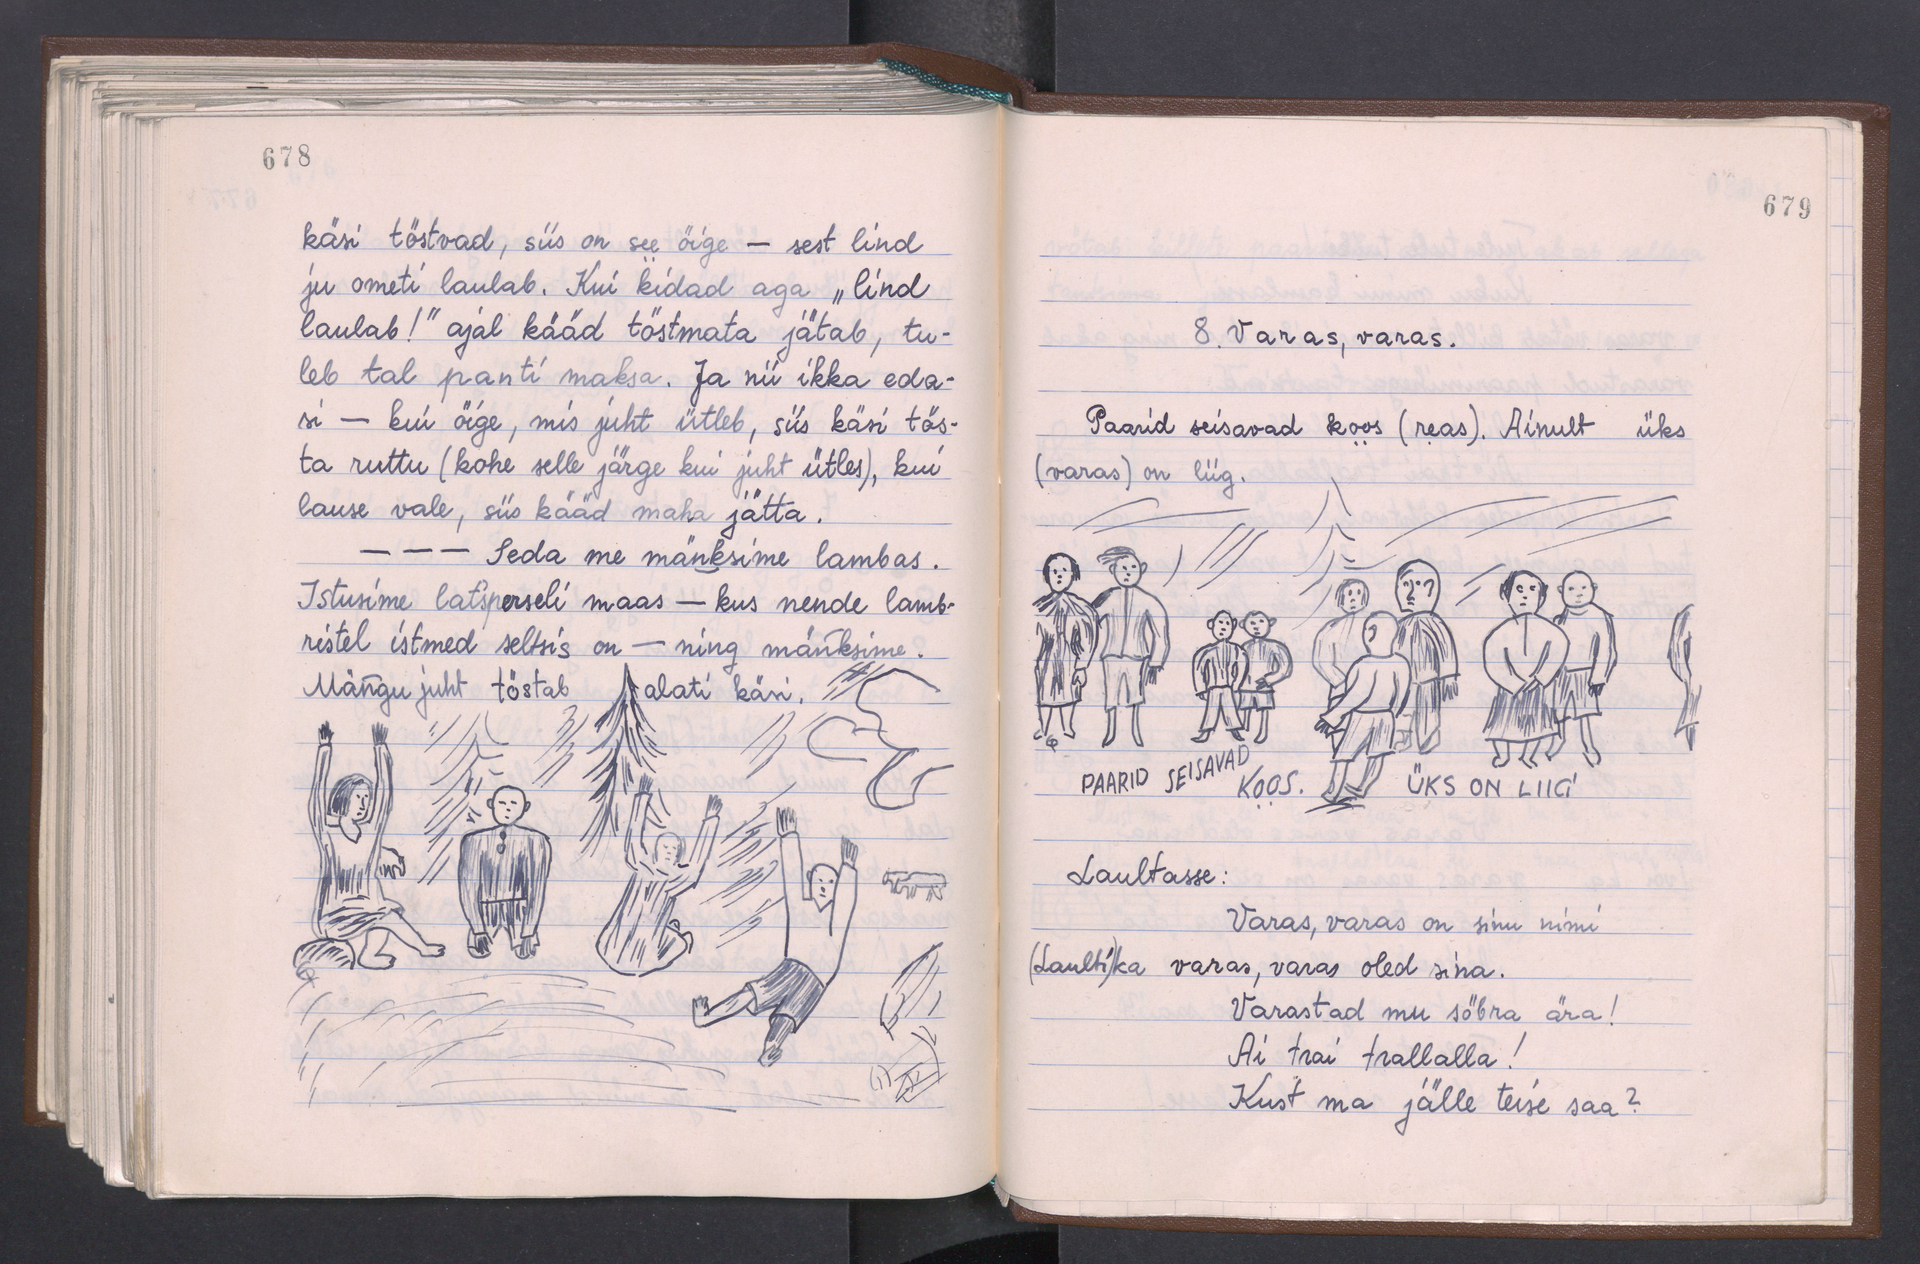 678
käsi töstvad, siis on see öige — sest lind
ju ometi laulab. Kui kidad aga „lind
laulab!" ajal kääd töstmata jätab, tu-
leb tal panti maksa. Ja nii ikka eda-
si — kui öige, mis juht ütleb, siis käsi tös-
ta ruttu (kohe selle järge kui juht ütles), kui
lause vale, siis kääd maha jätta.
— — — Seda me mänksime lambas.
Istusime latsperseli maas — kus nende lamb-
ristel istmed seltsis on — ning mänksime.
Mängu juht töstab alati käsi.
679
8. Varas, varas.
Paarid seisavad koos (reas). Ainult üks
(varas) on liig.
PAARID SEISAVAD KOOS. ÜKS ON LIIG
Laultasse:
Varas, varas on sinu nimi
(Laulti)ka varas, varas oled sina.
Varastad mu söbra ära!
Ai trai trallalla!
Kust ma jälle teise saa?